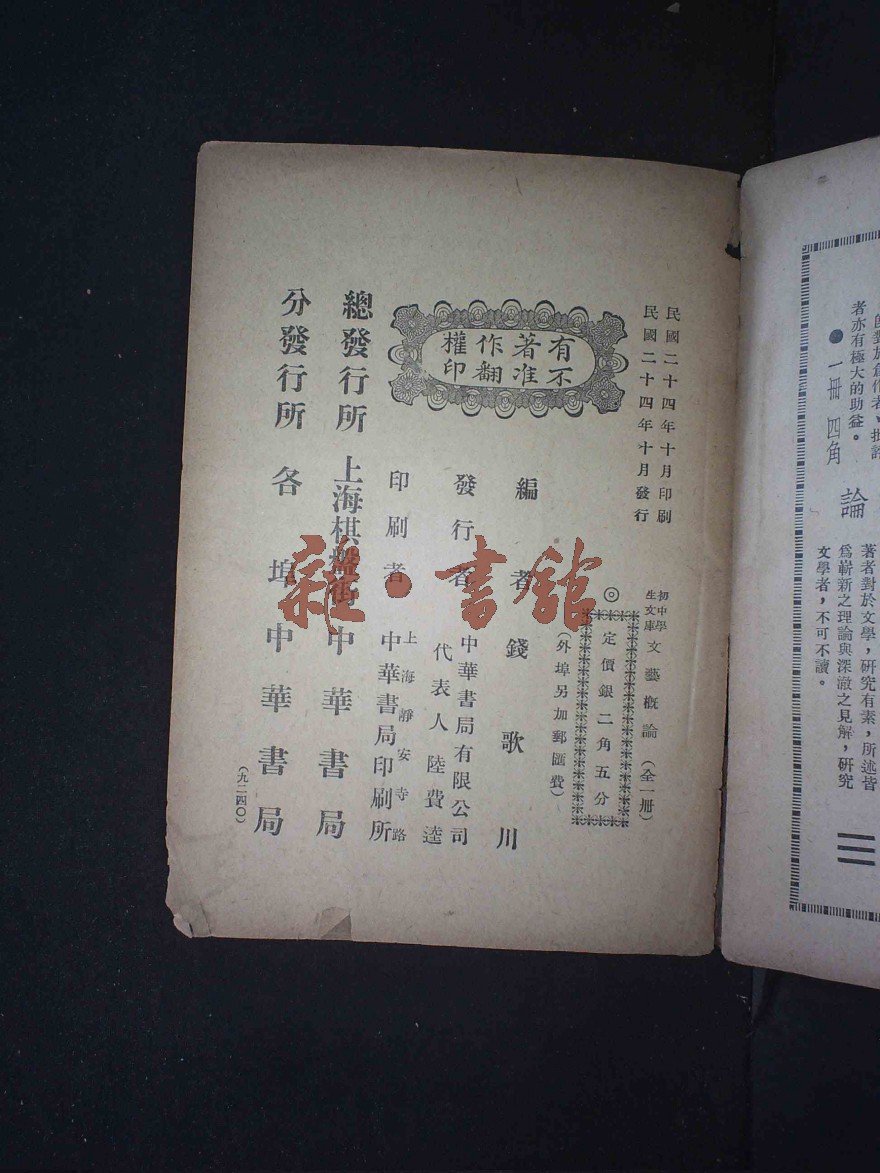 民國二十四年十月印刷
民國二十四年十月發行
初中學生文庫 文藝概論（全一册）
◎定價銀二角五分
（外埠另加郵匯費）
有著作權
不准翻印
編者 錢歌川
發行者 中華書局有限公司
代表人 陸費逵
印刷者 上海靜安寺路
中華書局印刷所
總發行所 上海棋盤街中華書局
分發行所 各埠中華書局
（九二四〇）
雜·書館
者亦有極大的助益。
●一冊 四角
論
著者對於文學，研究有素，所述皆
爲嶄新之理論與深澈之見解，研究
文學者，不可不讀。